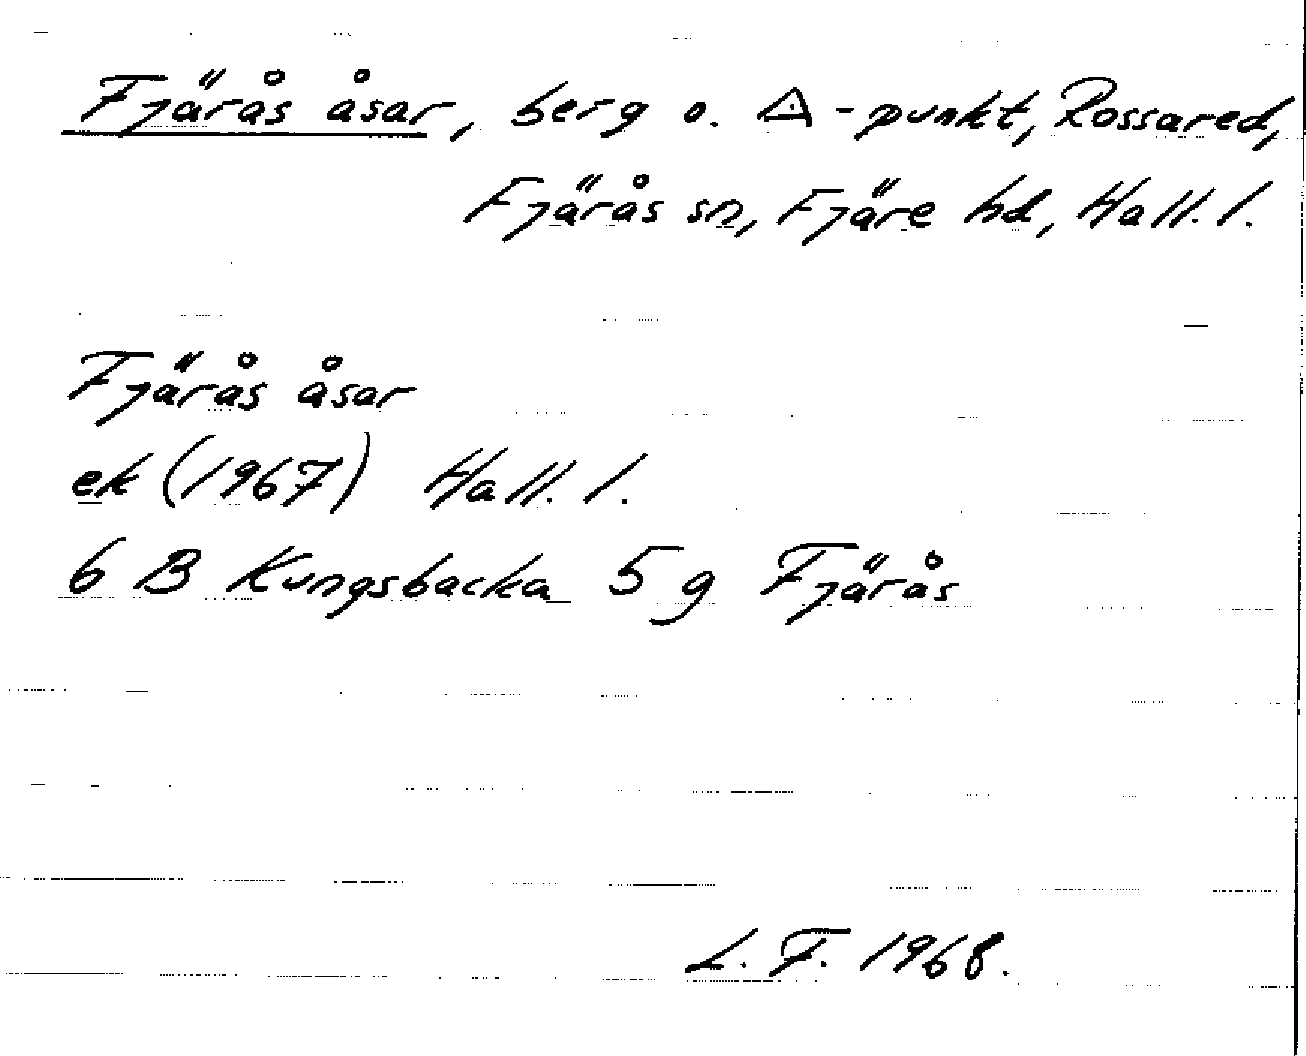 Fjärås åsar, berg o. △-punkt, Rossared,
Fjärås sn, Fjäre hd, Hall. l.
Fjärås åsar
ek (1967) Hall. l.
6 B Kungsbacka 5 g Fjärås
L. F. 1968.